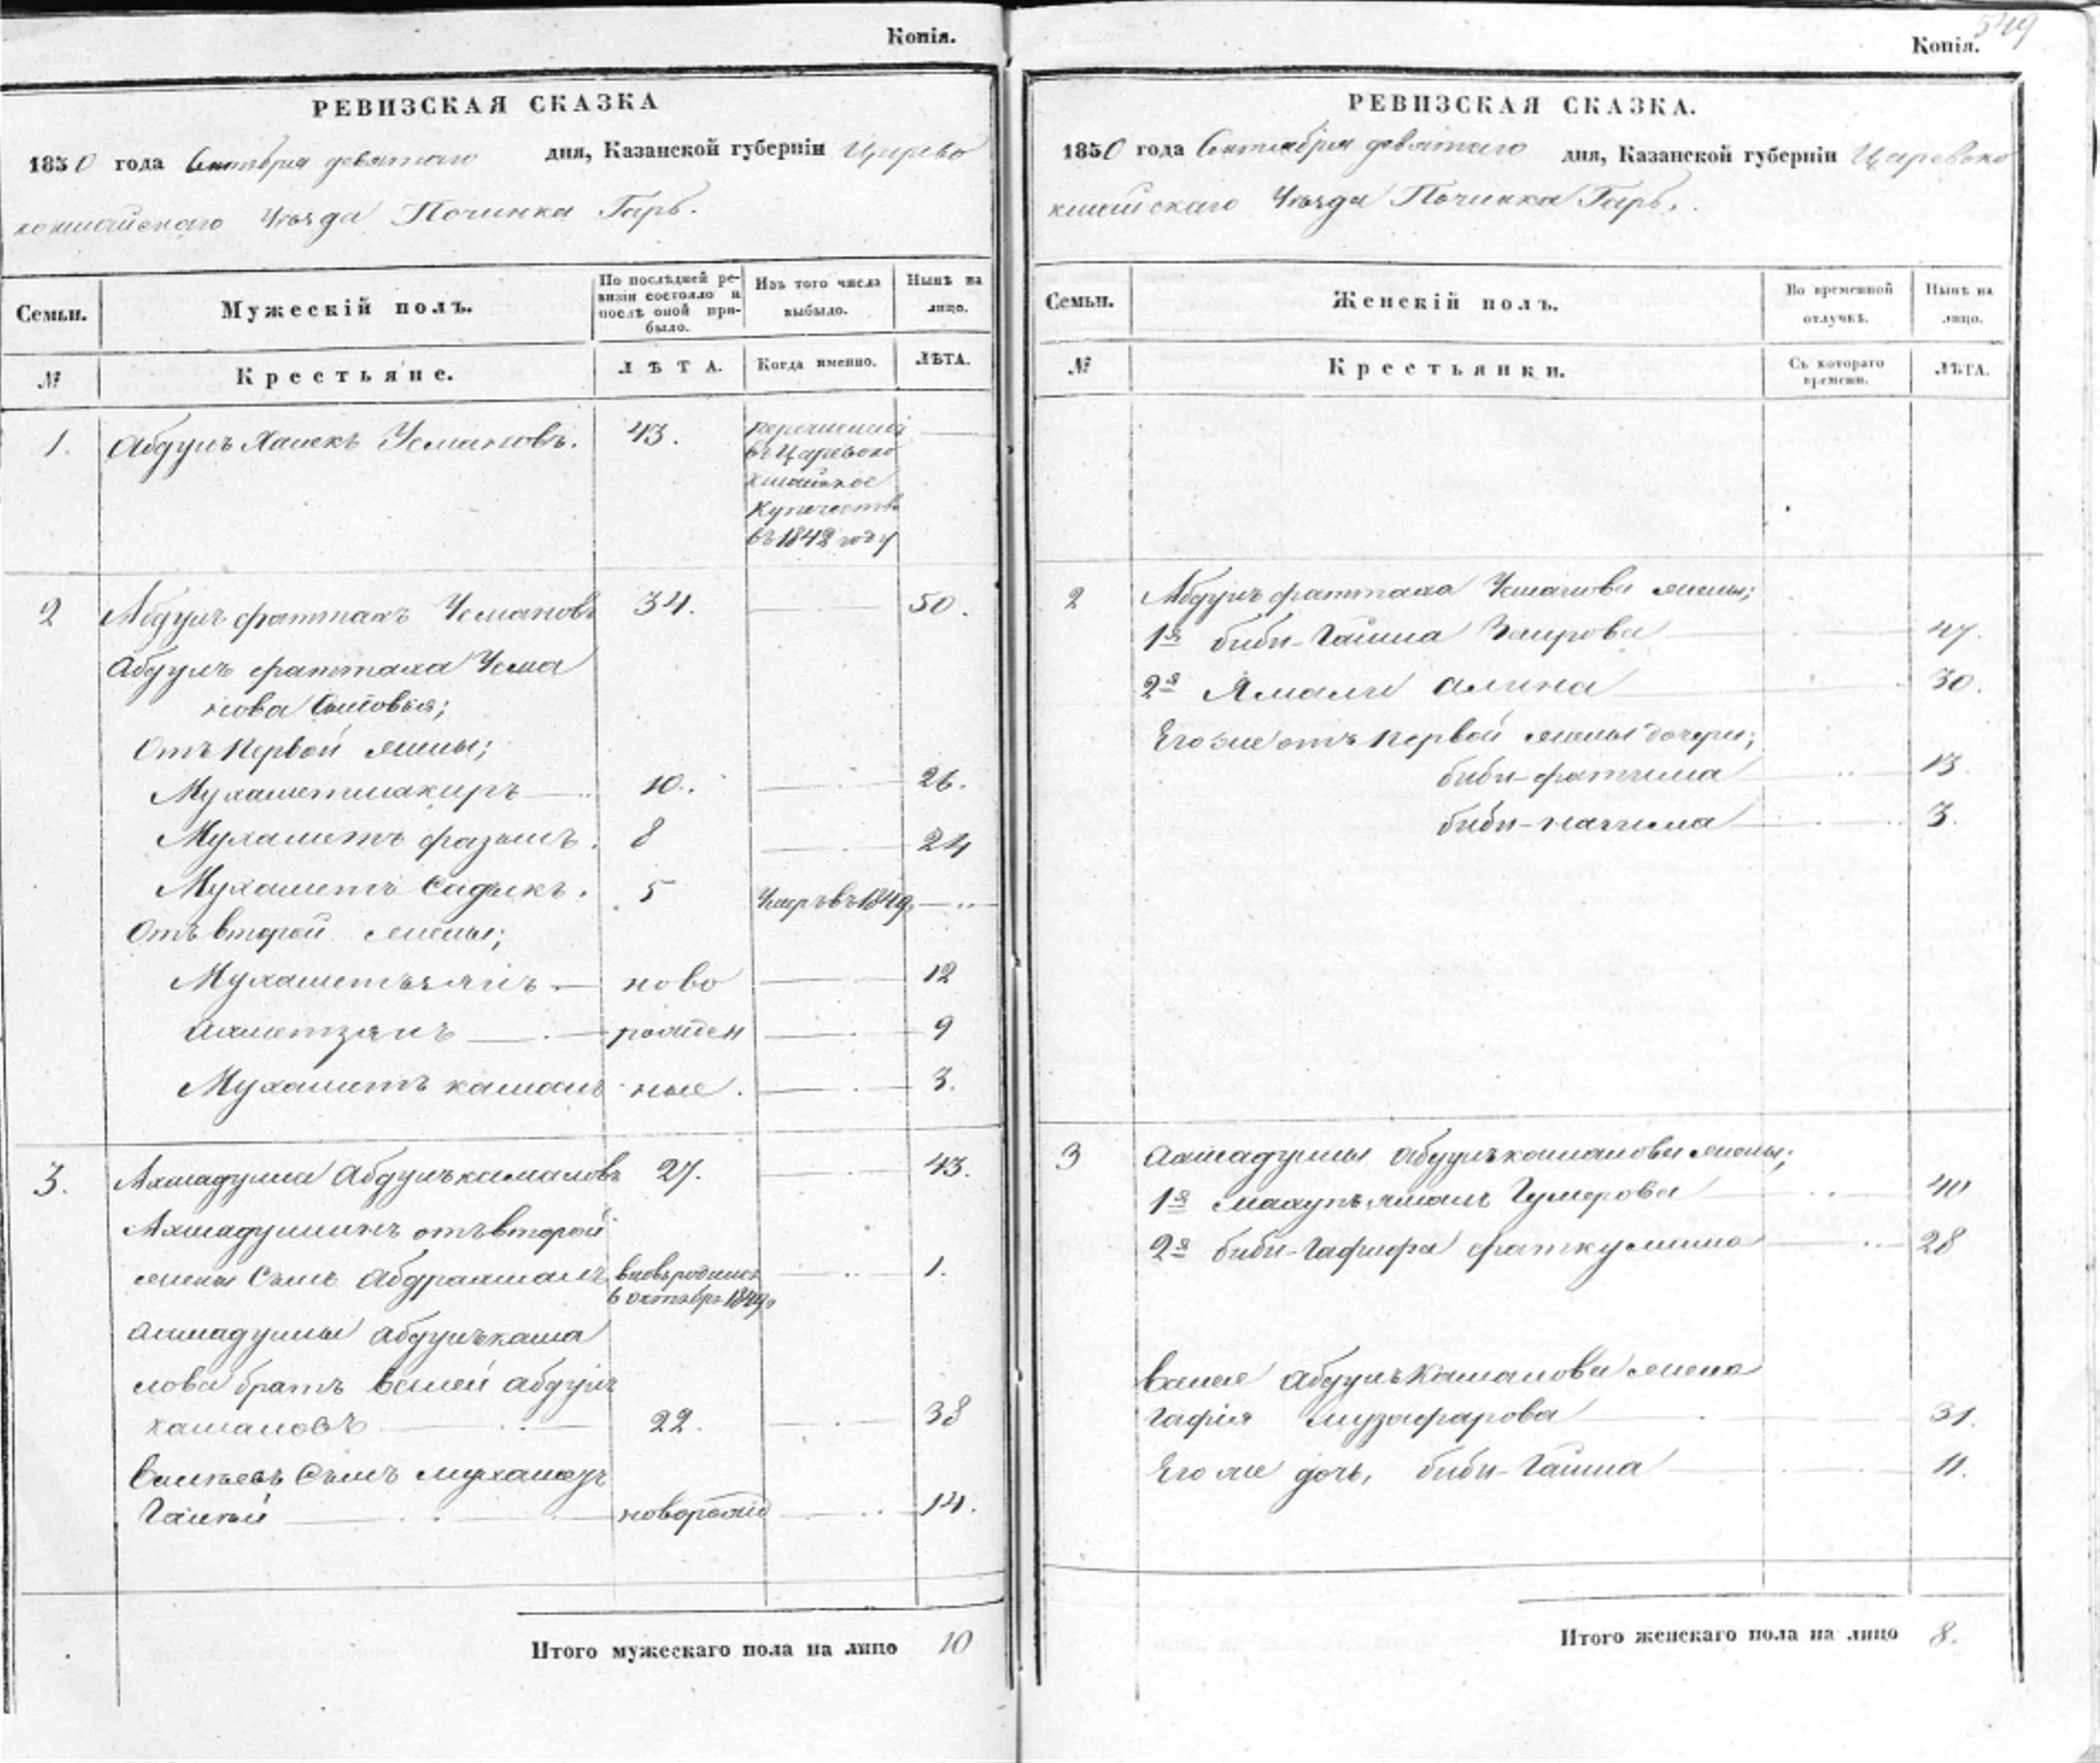 Копія.
РЕВИЗСКАЯ СКАЗКА
1850 года Сентября девятаго дня, Казанской губерніи Царево
кокшайскаго Уѣзда Починка Гарь.
Семьи. Мужескій полъ. По послѣдней ре- Изъ того числа Нынѣ на
визіи состояло и
послѣ оной при- выбыло. лицо.
было.
№ Крестьяне. ЛѢТА. Когда именно. ЛѢТА.
1. Абдулъ Халекъ Усмановъ. 43. перечисленъ —
въ Царевоко
кшайское
Купечество
въ 1842 году
2 Абдулъ фаттахъ Усмановъ 34. — 50.
Абдулъ фаттаха Усма
нова Сыновья;
Отъ первой жены;
Мухаметшакиръ — 10. — 26.
Мухаметъ фазылъ. 8 — 24
Мухаметъ Садыкъ. 5 Умръ въ 1849. —
Отъ второй жены;
Мухаметъянъ — ново — 12
Ахметзянъ — рожден — 9
Мухаметъ камалъ ные. — 3.
3. Ахмадулла Абдулъкамаловъ 27. — 43.
Ахмадуллинъ отъ второй
жены Сынъ Абдрахманъ вновь родился — 1.
в октябрѣ 1849.
Ахмадуллы Абдулъкама
лова братъ Валей абдулъ
камаловъ — 22. — 38
Валѣевъ Сынъ Мухамет
Галѣй — новорожд — 14.
Итого мужескаго пола на лицо 10
549
Копія.
РЕВИЗСКАЯ СКАЗКА.
1850 года Сентября девятаго дня, Казанской губерніи Царевоко
кшайскаго Уѣзда Починка Гарь.
Семьи. Женскій полъ. Во временной Нынѣ на
отлучкѣ. лицо.
№ Крестьянки. Съ котораго ЛѢТА.
времени.
2 Абдулъ фаттаха Усманова жены;
1я биби-Гайша Заирова — 47.
2я Ямали Алина — 30.
Его же отъ первой жены дочери;
биби-фатима — 13
биби-нагима — 3.
3 Ахмадуллы абдулъкамалова жены;
1я Махупъямалъ Гумерова — 40
2я биби-Гафифа фаткуллина — 28
Валея абдулъкамалова жена
Гафія Музафарова — 31.
Его же дочь, биби-Гайша — 11.
Итого женскаго пола на лицо 8.